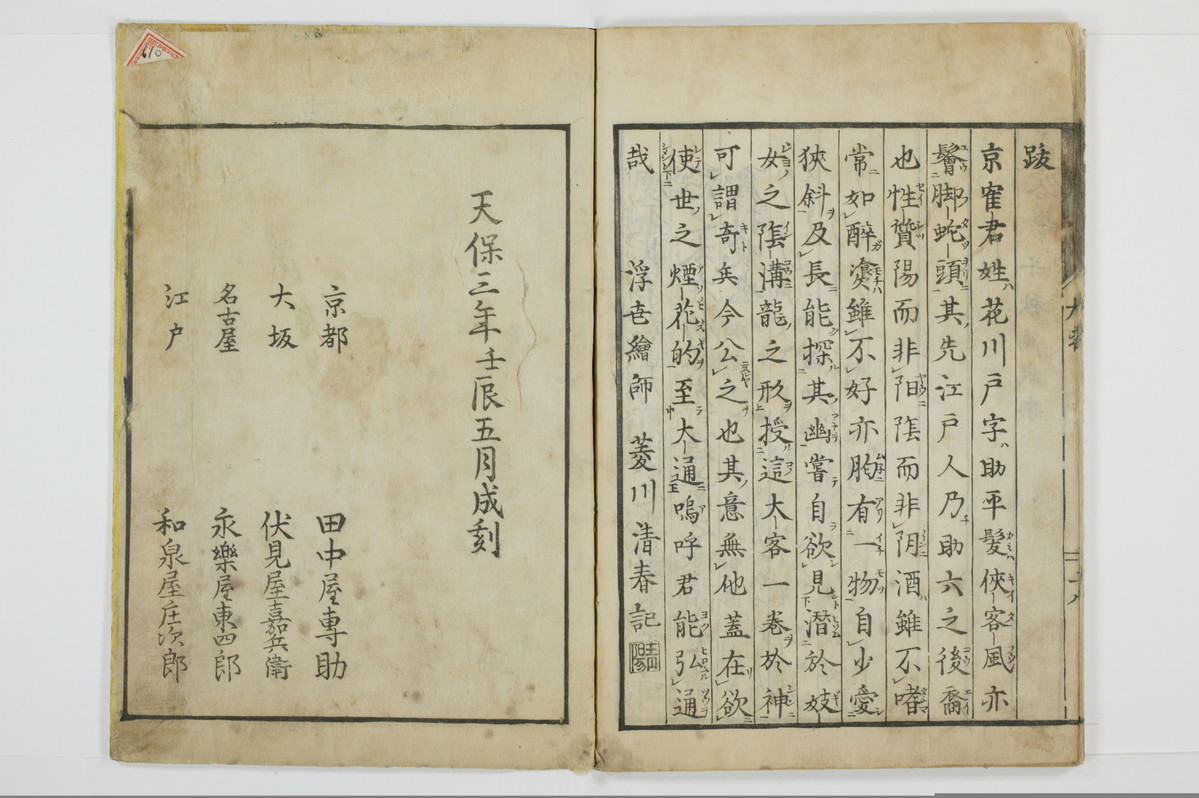 跋
京寉君姓花川戸字助平髪俠客風亦
鬠脚蛇頭其先江戸人乃助六之後裔
也性質陽而非陽陰而非陰酒雖不嗜
常如醉雖不好亦胸有一物自少愛
狹斜及長能探其幽嘗自欲見潛於妓
女之陰溝龍之形授這大客一巻於神
可謂奇矣今公之也其意無他蓋在欲
使世之煙花的至大通嗚呼君能弘通
哉　浮世繪師　菱川清春記
天保三年壬辰五月成刻
京都　田中屋專助
大坂　伏見屋嘉兵衛
名古屋　永樂屋東四郎
江戸　和泉屋庄次郎